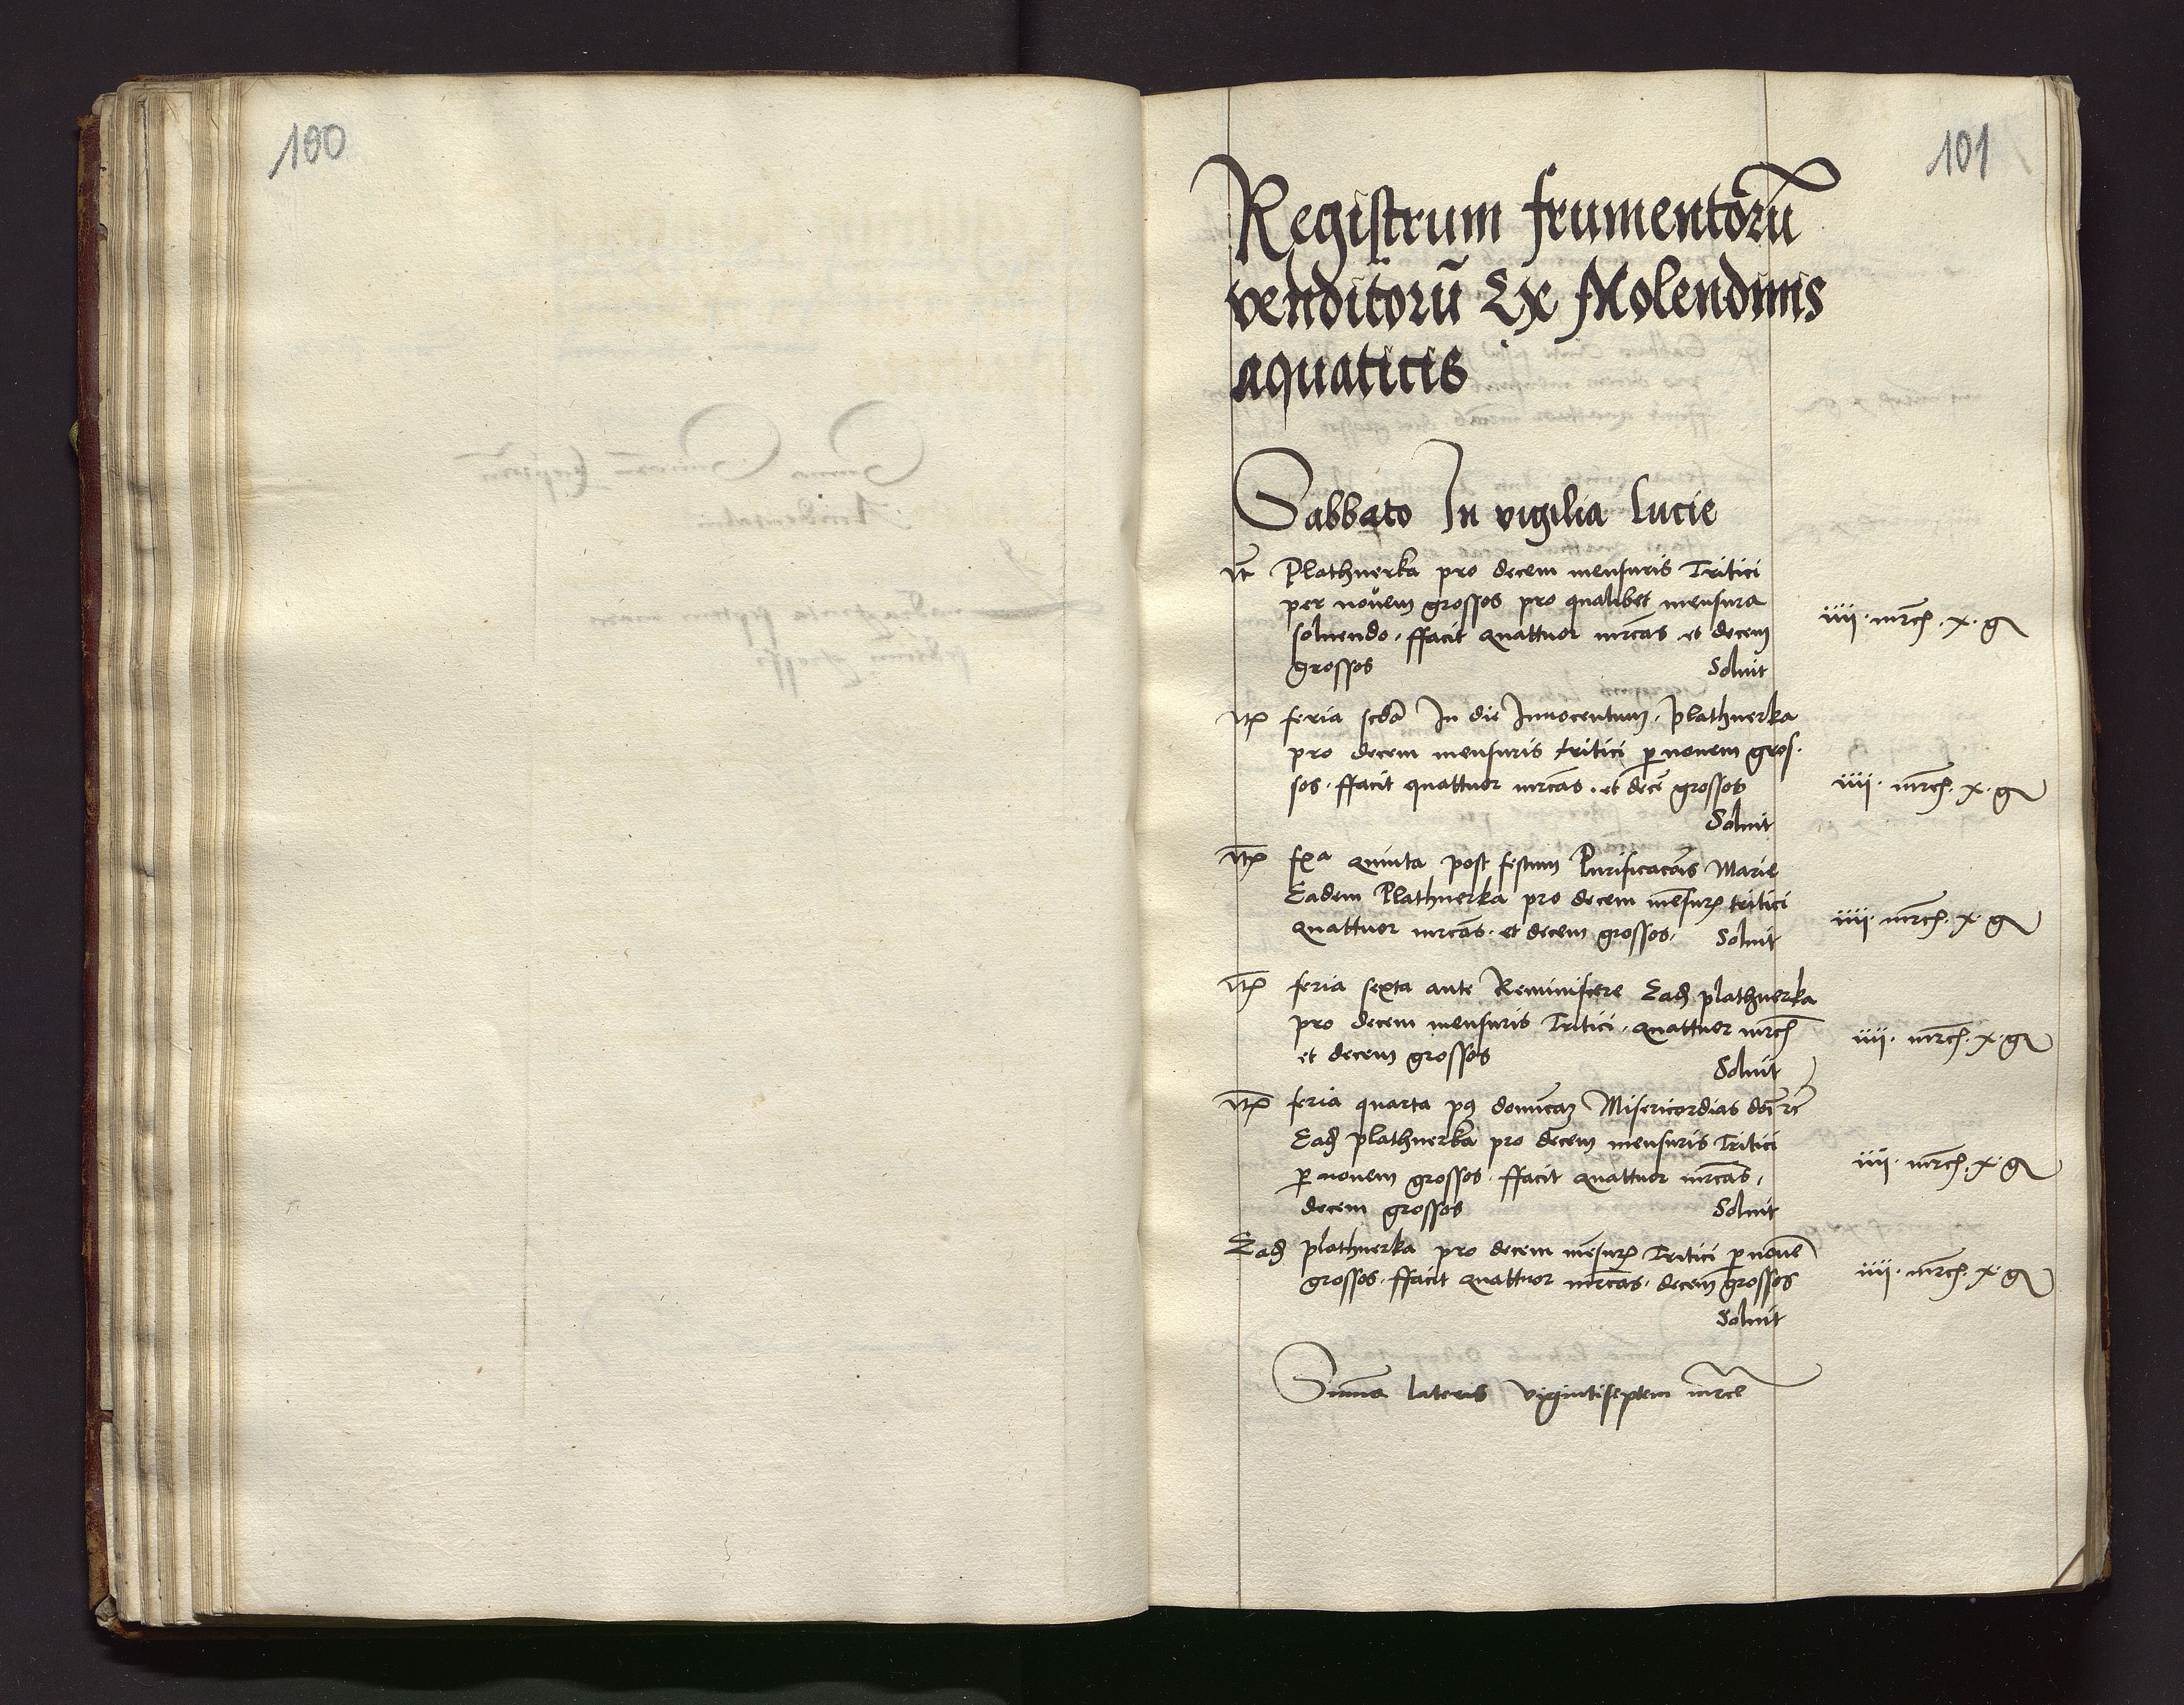 100
101
Registrum frumentorū
venditorū Ex Molendinis
aquaticis
Sabbato In vigilia Lucie
Plathnerka pro decem mensuris Tritici
per novem grossos pro qualibet mensura
soluendo. ffacit quattuor mrcas et decem
grossos Soluit
iiii. mrch. x. g
Itm feria scda In die Innocentum. Plathnerka
pro decem mensuris tritici p nouem gros-
sos. ffacit quattuor mrcas. et decē grossos
Soluit
iiii. mrch. x. g
Itm fxa quinta post festum Purificacōis Marie
Eadem Plathnerka pro decem mēsurꝭ tritici
quattuor mrcas. et decem grossos. Soluit
iiii. mrch. x. g
Itm feria sexta ante Reminiscere Ead plathnerka
pro decem mensuris Tritici. quattuor mrch
et decem grossos
Soluit
iiii. mrch. x. g
Itm feria quarta pꝰ domīcaꝫ Misericordias doī
Ead plathnerka pro decem mensuris Tritici
p nouem grossos. ffacit quattuor mrcas.
decem grossos Soluit
iiii. mrch. x. g
Ead plathnerka pro decem mēsurꝭ Tritici p nouē
grossos. ffacit quattuor mrcas. decem grossos
Soluit
iiii. mrch. x. g
Summa lateris vigintiseptem mrce